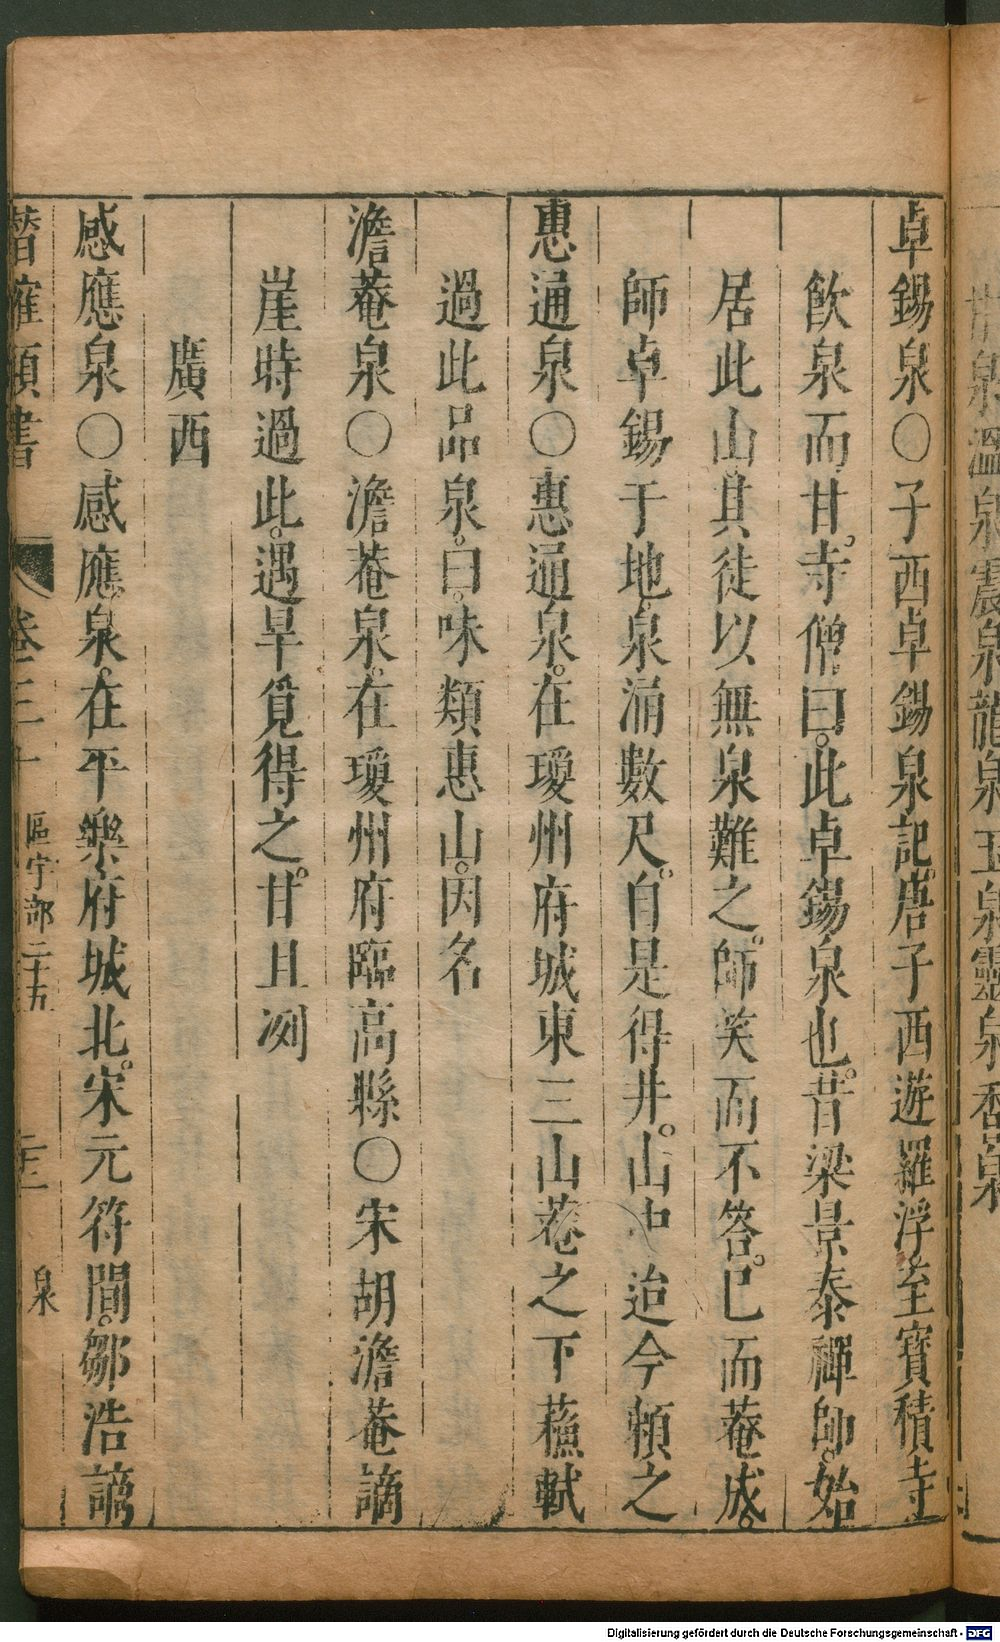 卓錫泉〇子西卓錫泉記。唐子西遊羅浮至寶積寺
飲泉而甘。寺僧曰。此卓錫泉也。昔梁景泰禪師。始
居此山。其徒以無泉難之。師笑而不答。已而菴成。
師卓錫于地。泉涌數尺。自是得井。山中迨今賴之
惠通泉〇惠通泉。在瓊州府城東三山菴之下蘓軾
過此品泉。曰。味類惠山。因名
澹菴泉〇澹菴泉。在瓊州府臨高縣〇宋胡澹菴謫
崖時過此。遇旱覓得之。甘且冽
廣西
感應泉〇感應泉。在平樂府城北。宋元符間。鄒浩謫
潛確類書 卷三十 區宇部二十五 二十二 泉
泉溫泉震泉龍泉玉泉靈泉香泉
Digitalisierung gefördert durch die Deutsche Forschungsgemeinschaft - DFG